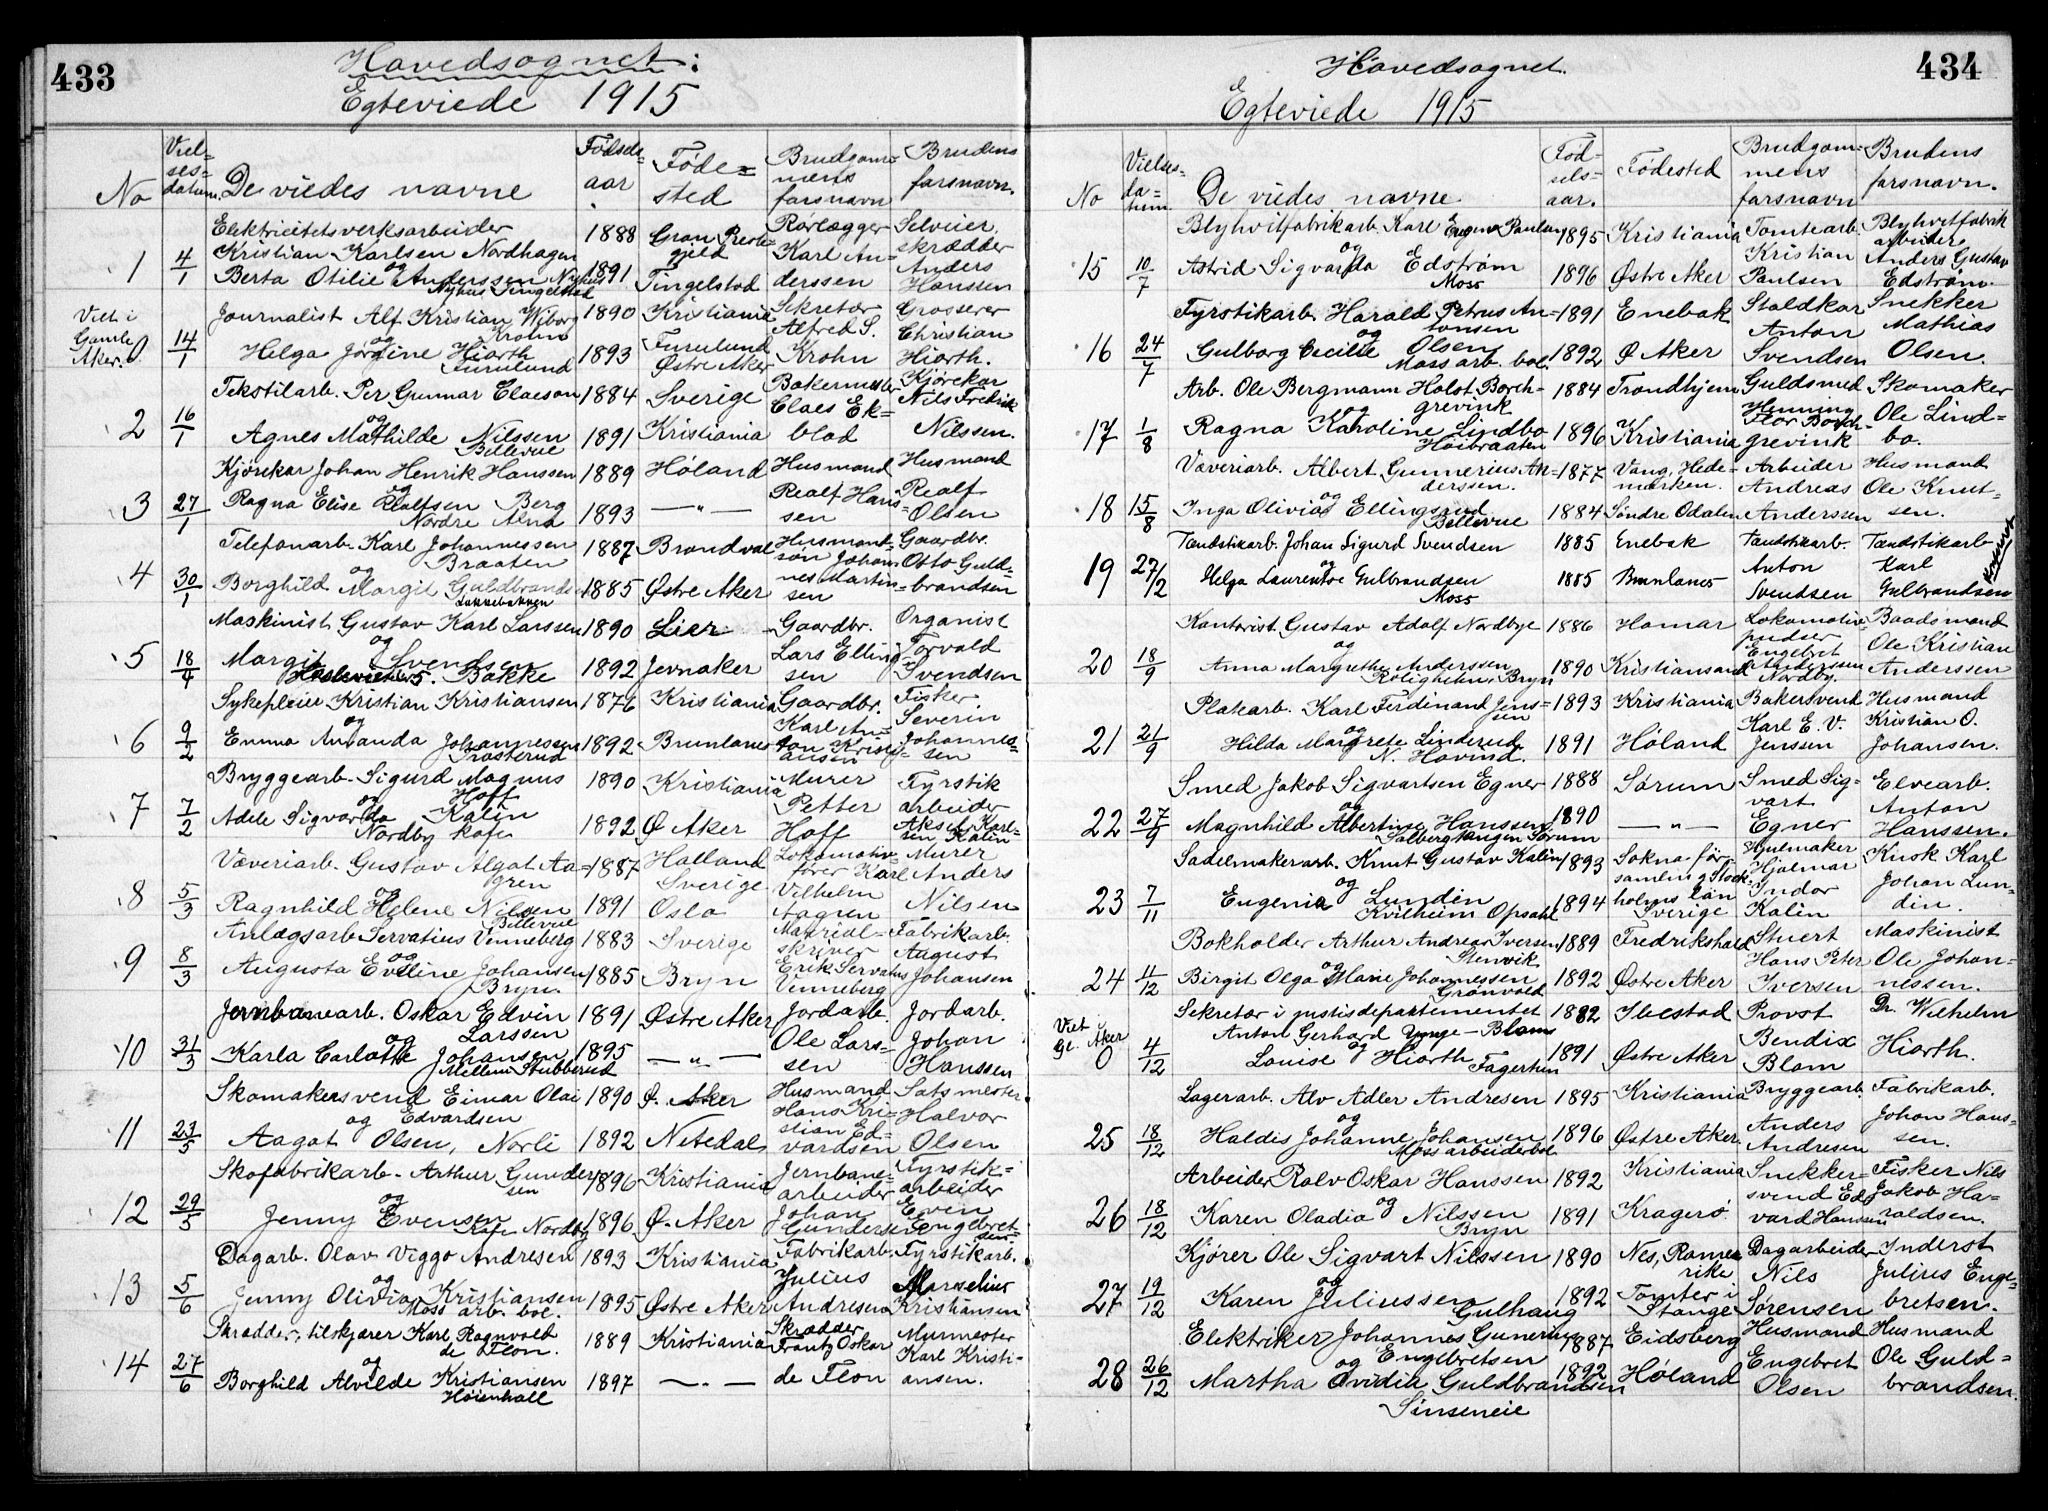 433
Hovedsognet:
Egteviede 1915
No
Vielsesdatum.
De viedes navne
Fødselsaar
Fødested
Brudgommens farsnavn
Brudens farsnavn.
1 4/1 Elektricitetsverksarbeider Kristian Karlsen Nordhagen 1888 Gran Prestegjeld Rørlægger Karl Anderssen Selveier, skrædder Anders Hanssen
og Berta Otilie Anderssen Nyhus Tingelstad 1891 Tingelstad
Viet i Gamle Aker. 0 14/1 Journalist Alf Kristian Wiborg Krohn 1890 Kristiania Sekretær Alfred S. Krohn Grosserer Christian Hiorth.
og Helga Jørgine Hiorth Furulund 1893 Furulund Østre Aker
2 16/1 Tekstilarb. Per Gunnar Claeson 1884 Sverige Bakermester Claes Ekblad Kjørekar Nils Fredrik Nilssen.
og Agnes Mathilde Nilssen Bellevue 1891 Kristiania
3 27/1 Kjørekar Johan Henrik Hanssen 1889 Høland Husmand Realf Hanssen Husmand Realf Olsen
og Ragna Elise Realfsen Berg Nordre Alna 1893 — " —
4 30/1 Telefonarb. Karl Johannessen Braaten 1887 Brandval Husmandssøn Johannes Martinsen Gaardbr. Otto Guldbrandsen
og Borghild Margit Guldbrandsen Lakkebakken 1885 Østre Aker
5 18/4 Maskinist Gustav Karl Larssen 1890 Lier Gaardbr. Lars Ellingsen Organist Torvald Svendsen
og Margit Svendsen Bakke 1892 Jevnaker
6 9/2 Sykepleier Kristian Kristiansen 1876 Kristiania Gaardbr. Karl Anton Kristiansen Fisker Severin Johannessen
og Emma Amanda Johannessen Trosterud 1892 Brunlanes
7 7/2 Bryggearb. Sigurd Magnus Hoff 1890 Kristiania Murer Petter Hoff Fyrstikarbeider Aksel Karlsen Kalin
og Adele Sigvarda Kalin Nordby kafe 1892 Ø Aker
8 5/3 Væveriarb. Gustav Algot Aagren 1887 Halland Sverige Lokomotivfører Karl Vilhelm Aagren Murer Anders Nilsen
og Ragnhild Helene Nilsen Bellevue 1891 Oslo
9 8/3 Anlægsarb. Servatius Venneberg 1883 Sverige Materialskriver Erik Servatius Venneberg Fabrikarb. August Johansen
og Augusta Eveline Johansen Bryn. 1885 Bryn
10 31/3 Jernbanearb. Oskar Edvin Larssen 1891 Østre Aker Jordarb. Ole Larssen Jordarb. Johan Hanssen
og Karla Carlotte Johansen Mellem Stubberud 1895 — " —
11 23/5 Skomakersvend Eimar Olai Edvardsen 1890 Ø. Aker Husmand Hans Kristian Edvardsen Satsmester Halvor Olsen
og Aagot Olsen, Norli 1892 Nitedal
12 29/5 Skofabrikarb. Arthur Gundersen 1896 Kristiania Jernbanearbeider Johan Gundersen Fyrstikarbeider Even Engebretsen
og Jenny Evensen Kafe Nordby 1896 Ø. Aker
13 5/6 Dagarb. Olav Viggo Andresen 1893 Kristiania Fabrikarb. Julius Andresen Fyrstikarb. Marselius Kristiansen
og Jenny Olivia Kristiansen Moss arb. bol. 1895 Østre Aker
14 27/6 Skrædder, tilskjærer Karl Ragnvald de Flon. 1889 Kristiania Skrædder Frantz Oskar de Flon Murmester Karl Kristiansen.
og Borghild Alvilde Kristiansen Høienhall 1897 — " —
434
Hovedsognet.
Egteviede 1915
No
Vielsesdatum.
De viedes navne
Fødselsaar.
Fødested
Brudgommens farsnavn
Brudens farsnavn.
15 10/7 Blyhvitfabrikarb. Karl Eugen Paulsen 1895 Kristiania Tomtearb. Kristian Paulsen Blyhvitfabrikarbeider Anders Gustav Edstrøm.
og Astrid Sigvarda Edstrøm Moss 1896 Østre Aker
16 24/7 Fyrstikarb. Harald Petrus Antonsen 1891 Enebak Staldkar Anton Svendsen Snekker Mathias Olsen.
og Gulborg Cecilie Olsen Moss arb. bol. 1892 Ø Aker
17 1/8 Arb. Ole Bergmann Holst Borchgrevink 1884 Trondhjem Guldsmed Henning Flor Borchgrevink Skomaker Ole Lindbo.
og Ragna Karoline Lindbo Høibraaten 1896 Kristiania
18 15/8 Væveriarb. Albert Gunnerius Anderssen. 1877 Vang, Hedemarken. Arbeider Andreas Anderssen Husmand Ole Knutsen.
og Inga Olivia Ellingsrud Bellevue 1884 Søndre Odalen
19 27/2 Tændstikarb. Johan Sigurd Svendsen 1885 Enebak Tændstikarb. Anton Svendsen Tændstikarb. Karl Gulbrandsen
og Helga Laurentse Gulbrandsen Moss 1885 Brunlanes
20 18/9 Kontorist Gustav Adolf Nordbye 1886 Hamar Lokomotivpudser Engebret Anderssen Nordby. Baadsmand Ole Kristian Anderssen
og Anna Margrethe Anderssen Rolighem, Bryn 1890 Kristiansand
21 21/9 Platearb. Karl Ferdinand Jenssen 1893 Kristiania Bakersvend Karl E. V. Jenssen Husmand Kristian O. Johansen.
og Hilda Margrete Linderud N. Hovind. 1891 Høland
22 27/9 Smed Jakob Sigvartsen Egner 1888 Sørum Smed Sigvart Egner Elvearb. Anton Hanssen.
og Magnhild Albertine Hanssen Sørum 1890 — " —
23 7/11 Sadelmakerarb. Knut Gustav Kalin 1893 Sokna församling Stockholms län Sverige Hjulmaker Hjalmar Indor Kalin Kusk Karl Johan Lundin.
og Eugenia Lundin Kvilheim Opsahl 1894
24 11/12 Bokholder Arthur Andreas Iversen Stenvik 1889 Fredrikshald Stuert Hans Peter Iversen Maskinist Ole Johannessen.
og Birgit Olga Marie Johannessen Grønvold 1892 Østre Aker
Viet i Gl. Aker 0 4/12 Sekretær i justisdepartementet Anton Gerhard Ynge-Blom 1882 Ibestad Provst Bendix Blom Dr. Wilhelm Hiorth.
og Louise Hiorth Fagertun 1891 Østre Aker
25 18/12 Lagerarb. Alv Adler Andresen 1895 Kristiania Bryggearb. Anders Andresen Fabrikarb. Johan Hanssen.
og Haldis Johanne Johansen Moss arbeiderbol 1896 Østre Aker.
26 18/12 Arbeider Rolv Oskar Hanssen 1892 Kristiania Snekkersvend Edvard Hanssen Fisker Nils Jakob Haraldsen.
og Karen Oladia Nilssen Bryn 1891 Kragerø
27 19/12 Kjører Ole Sigvart Nilssen 1890 Nes, Romerike Dagarbeider Nils Sørensen Inderst Julius Engebretsen.
og Karen Juliussen Gulhaug 1892 Tomter i Stange
28 26/12 Elektriker Johannes Gunerius Engebretsen 1887 Eidsberg Husmand Engebret Olsen Husmand Ole Guldbrandsen.
og Martha Ovidia Guldbrandsen Sinseneie 1892 Høland